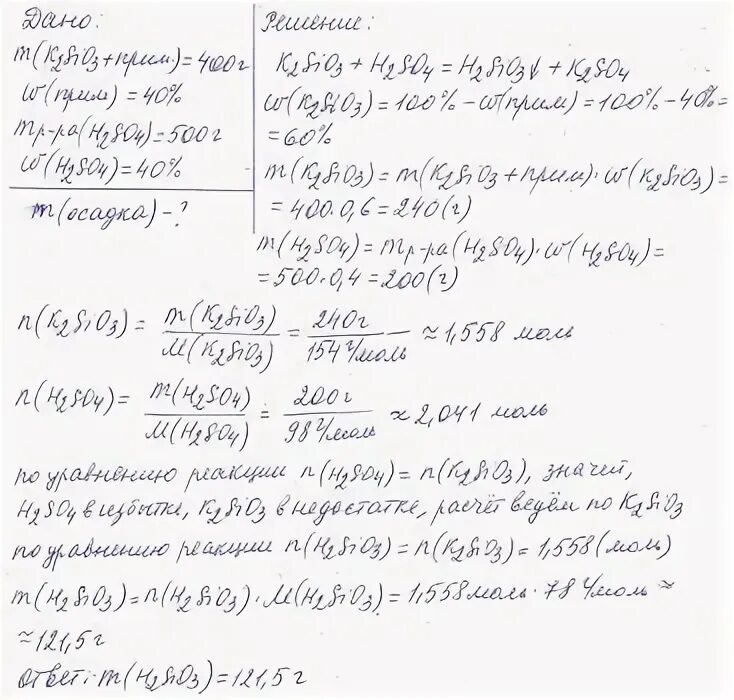 Дано:
m(K2SiO3+прим.)=400г
w(прим)=40%
mр-ра(H2SO4)=500г
w(H2SO4)=40%
m(осадка)-?
Решение:
K2SiO3+H2SO4=H2SiO3↓+K2SO4
w(K2SiO3)=100%-w(прим)=100%-40%=
=60%
m(K2SiO3)=m(K2SiO3+прим)·w(K2SiO3)=
=400·0,6=240(г)
m(H2SO4)=mр-ра(H2SO4)·w(H2SO4)=
=500·0,4=200(г)
n(K2SiO3)=m(K2SiO3)/M(K2SiO3)=240г/154г/моль≈1,558 моль
n(H2SO4)=m(H2SO4)/M(H2SO4)=200г/98г/моль≈2,041 моль
по уравнению реакции n(H2SO4)=n(K2SiO3), значит,
H2SO4 в избытке, K2SiO3 в недостатке, расчёт ведём по K2SiO3
по уравнению реакции n(H2SiO3)=n(K2SiO3)=1,558(моль)
m(H2SiO3)=n(H2SiO3)·M(H2SiO3)=1,558моль·78г/моль≈
≈121,5г
ответ: m(H2SiO3)=121,5г